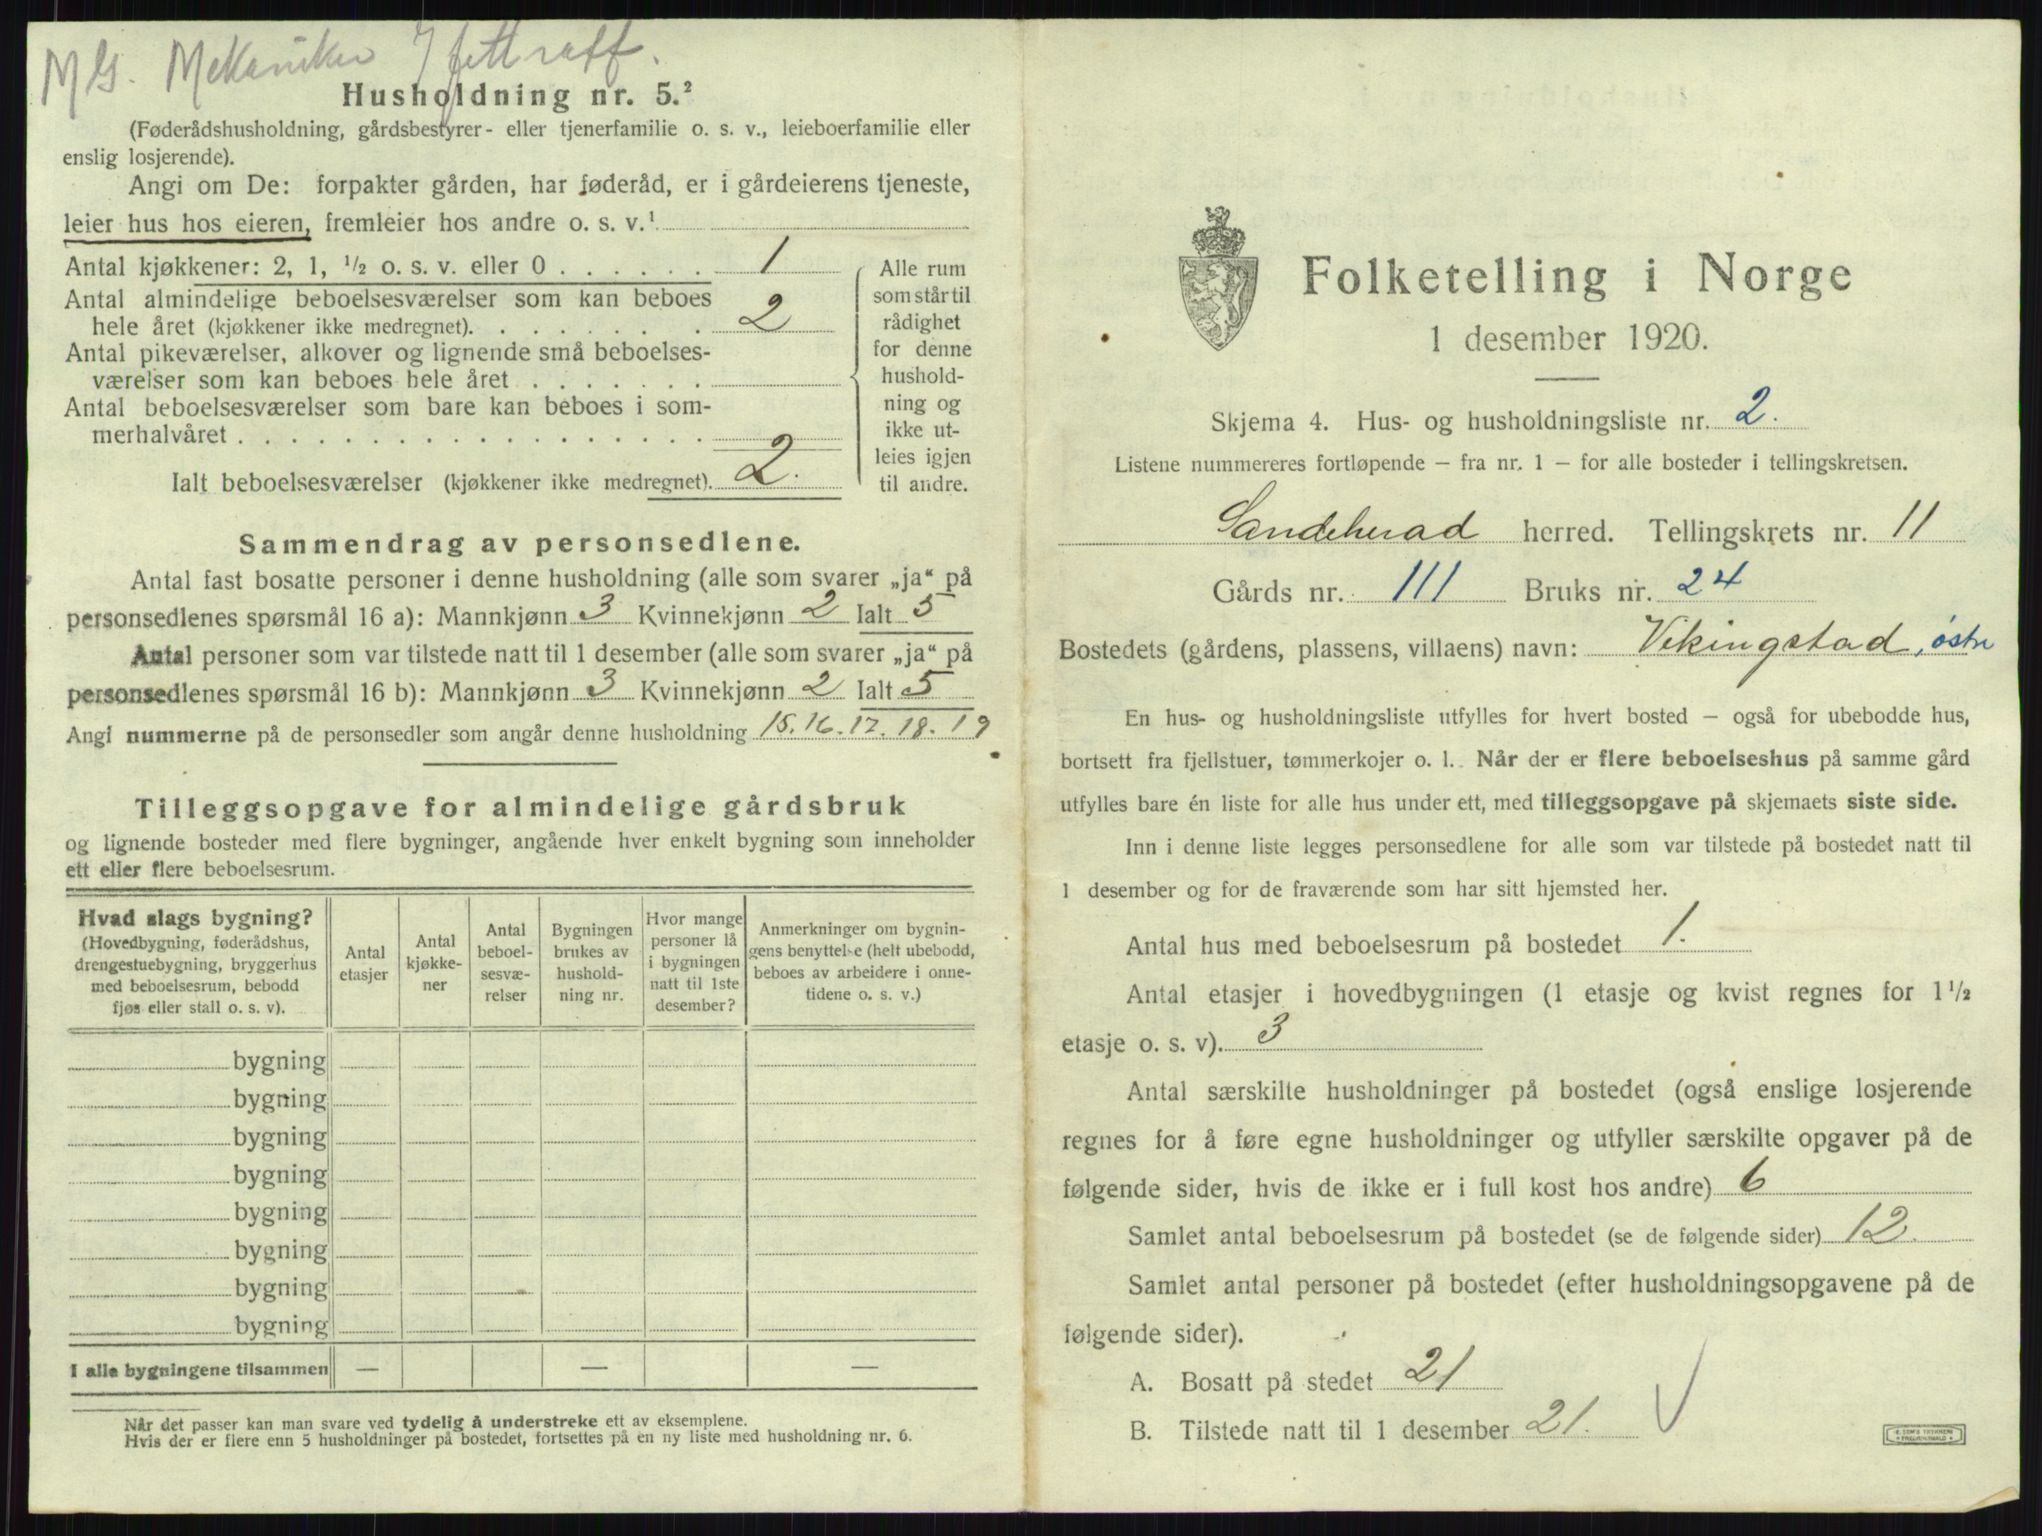 MG. Mekaniker
Husholdning nr. 5.²
(Føderådshusholdning, gårdsbestyrer- eller tjenerfamilie o. s. v., leieboerfamilie eller
enslig losjerende).
Angi om De: forpakter gården, har føderåd, er i gårdeierens tjeneste,
leier hus hos eieren, fremleier hos andre o. s. v.¹
Antal kjøkkener: 2, 1, ½ o. s. v. eller 0 . . . . . . 1
Antal almindelige beboelsesværelser som kan beboes
hele året (kjøkkener ikke medregnet). . . . . . . . 2
Antal pikeværelser, alkover og lignende små beboelses-
værelser som kan beboes hele året . . . . . . .
Antal beboelsesværelser som bare kan beboes i som-
merhalvåret . . . . . . . . . . . . . . . . . .
Ialt beboelsesværelser (kjøkkener ikke medregnet). 2.
Alle rum
som står til
rådighet
for denne
hushold-
ning og
ikke ut-
leies igjen
til andre.
Sammendrag av personsedlene.
Antal fast bosatte personer i denne husholdning (alle som svarer „ja“ på
personsedlenes spørsmål 16 a): Mannkjønn 3 Kvinnekjønn 2 Ialt 5
Antal personer som var tilstede natt til 1 desember (alle som svarer „ja“ på
personsedlenes spørsmål 16 b): Mannkjønn 3 Kvinnekjønn 2 Ialt 5
Angi nummerne på de personsedler som angår denne husholdning 15. 16. 17. 18. 19
Tilleggsopgave for almindelige gårdsbruk
og lignende bosteder med flere bygninger, angående hver enkelt bygning som inneholder
ett eller flere beboelsesrum.
Hvad slags bygning?
(Hovedbygning, føderådshus,
drengestuebygning, bryggerhus
med beboelsesrum, bebodd
fjøs eller stall o. s. v).
Antal
etasjer
Antal
kjøkke-
ner
Antal
beboel-
sesvæ-
relser
Bygningen
brukes av
hushold-
ning nr.
Hvor mange
personer lå
i bygningen
natt til 1ste
desember?
Anmerkninger om bygnin-
gens benyttelse (helt ubebodd,
beboes av arbeidere i onne-
tidene o. s. v.)
bygning
bygning
bygning
bygning
bygning
bygning
bygning
bygning
I alle bygningene tilsammen — — —
Når det passer kan man svare ved tydelig å understreke ett av eksemplene.
Hvis der er flere enn 5 husholdninger på bostedet, fortsettes på en ny liste med husholdning nr. 6.
Folketelling i Norge
1 desember 1920.
Skjema 4. Hus- og husholdningsliste nr. 2.
Listene nummereres fortløpende – fra nr. 1 – for alle bosteder i tellingskretsen.
Sandeherad herred. Tellingskrets nr. 11
Gårds nr. 111 Bruks nr. 24
Bostedets (gårdens, plassens, villaens) navn: Vikingstad, østre
En hus- og husholdningsliste utfylles for hvert bosted – også for ubebodde hus,
bortsett fra fjellstuer, tømmerkojer o. l. Når der er flere beboelseshus på samme gård
utfylles bare én liste for alle hus under ett, med tilleggsopgave på skjemaets siste side.
Inn i denne liste legges personsedlene for alle som var tilstede på bostedet natt til
1 desember og for de fraværende som har sitt hjemsted her.
Antal hus med beboelsesrum på bostedet 1.
Antal etasjer i hovedbygningen (1 etasje og kvist regnes for 1½
etasje o. s. v). 3
Antal særskilte husholdninger på bostedet (også enslige losjerende
regnes for å føre egne husholdninger og utfyller særskilte opgaver på de
følgende sider, hvis de ikke er i full kost hos andre) 6
Samlet antal beboelsesrum på bostedet (se de følgende sider) 12.
Samlet antal personer på bostedet (efter husholdningsopgavene på de
følgende sider).
A. Bosatt på stedet 21
B. Tilstede natt til 1 desember 21.